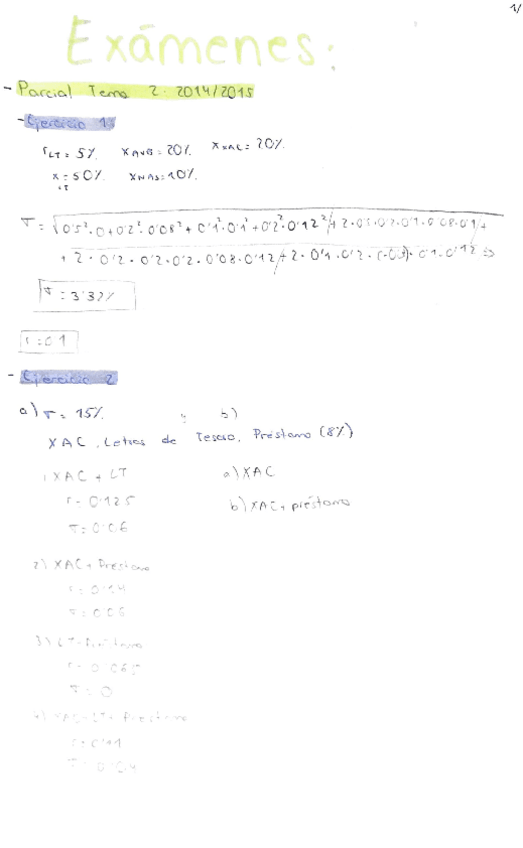 1/
Exámenes:
- Parcial Tema 2. 2014/2015
- Ejercicio 1
r LT = 5% X AVB = 20% X XAC = 20%
X LT = 50% X NAS = 10%
σ = √0'5²·0+0'2²·0'08²+0'1²·0'1²+0'2²·0'12²
σ = 3'32%
r = 0'1
- Ejercicio 2
a) σ = 15% b)
XAC, Letras de Tesoro, Préstamo (8%)
1 XAC + LT a) XAC
r = 0'125 b) XAC + préstamo
σ = 0'06
2) XAC + Préstamo
r = 0'14
σ = 0'06
3) LT + Préstamo
r = 0'065
σ = 0
4) XAC + LT + Préstamo
r = 0'11
σ = 0'04